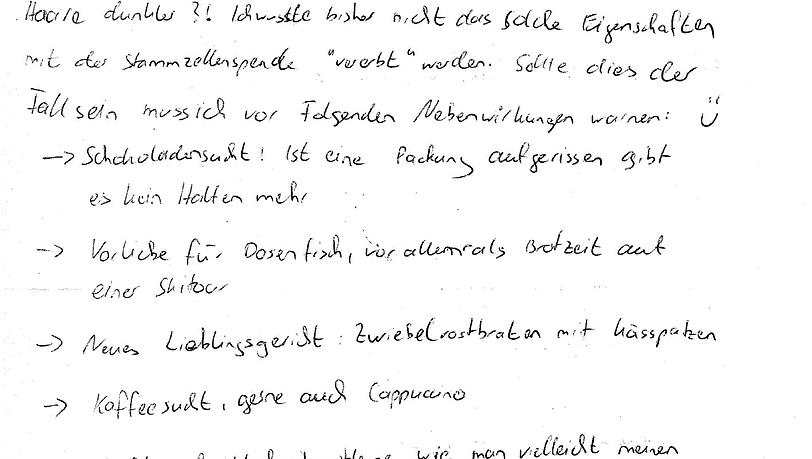 Haare dunkler?! Ich wusste bisher nicht das solche Eigenschaften
mit der Stammzellenspende "vererbt" werden. Sollte dies der
Fall sein muss ich vor Folgenden Nebenwirkungen warnen: Ü
-> Schokoladensucht! Ist eine Packung aufgerissen gibt
es kein Halten mehr
-> Vorliebe für Dosenfisch, vor allem als Brotzeit auf
einer Skitour
-> Neues Lieblingsgericht: Zwiebelrostbraten mit Kässpatzen
-> Koffeesucht, gerne auch Cappuccino
wie man vielleicht meinen